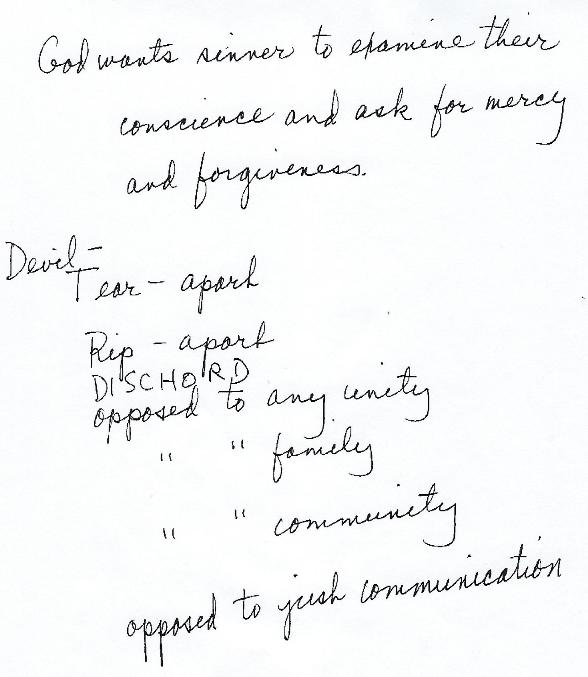 God wants sinner to examine their
conscience and ask for mercy
and forgiveness.
Devil -
Tear - apart
Rip - apart
DISCHORD
opposed to any unity
" " family
" " community
opposed to just communication